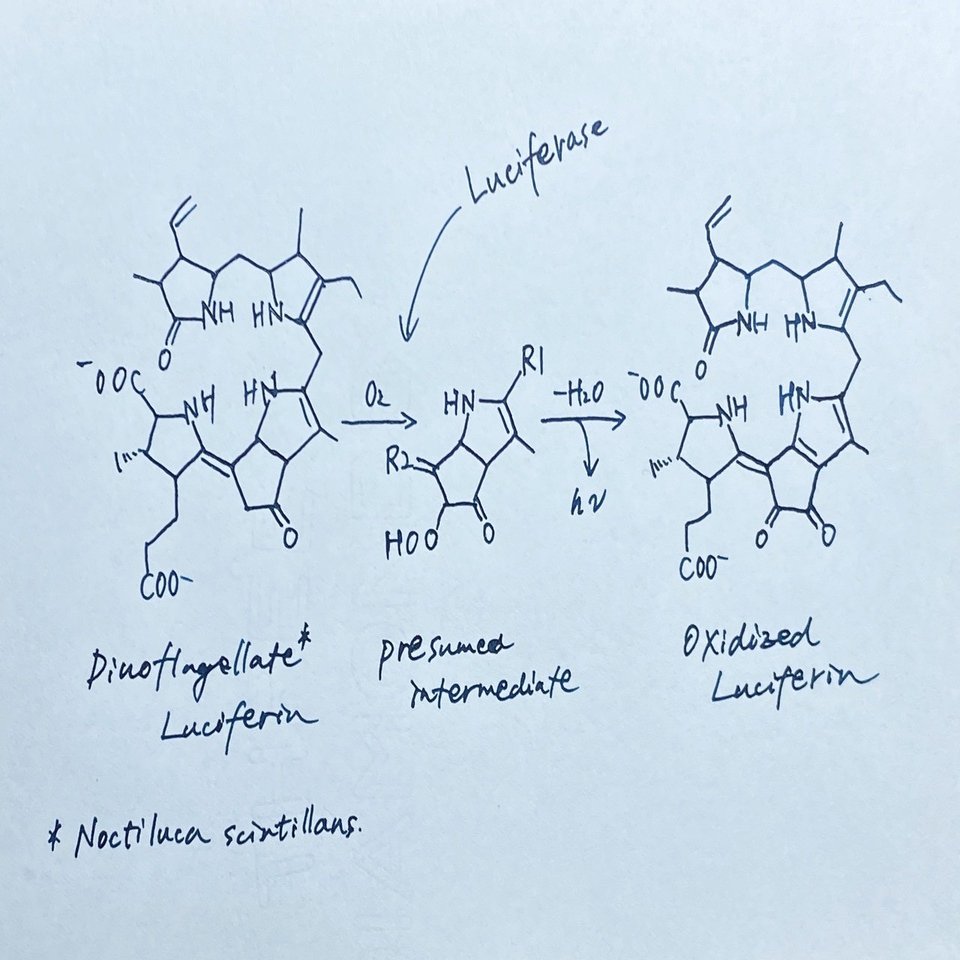 Luciferase
NH HN
O
⁻OOC
NH HN
O
COO⁻
O₂
R1
HN
R2
HOO O
-H₂O
hν
NH HN
O
⁻OOC
NH HN
O O
COO⁻
Dinoflagellate*
Luciferin
presumed
intermediate
Oxidized
Luciferin
* Noctiluca scintillans.